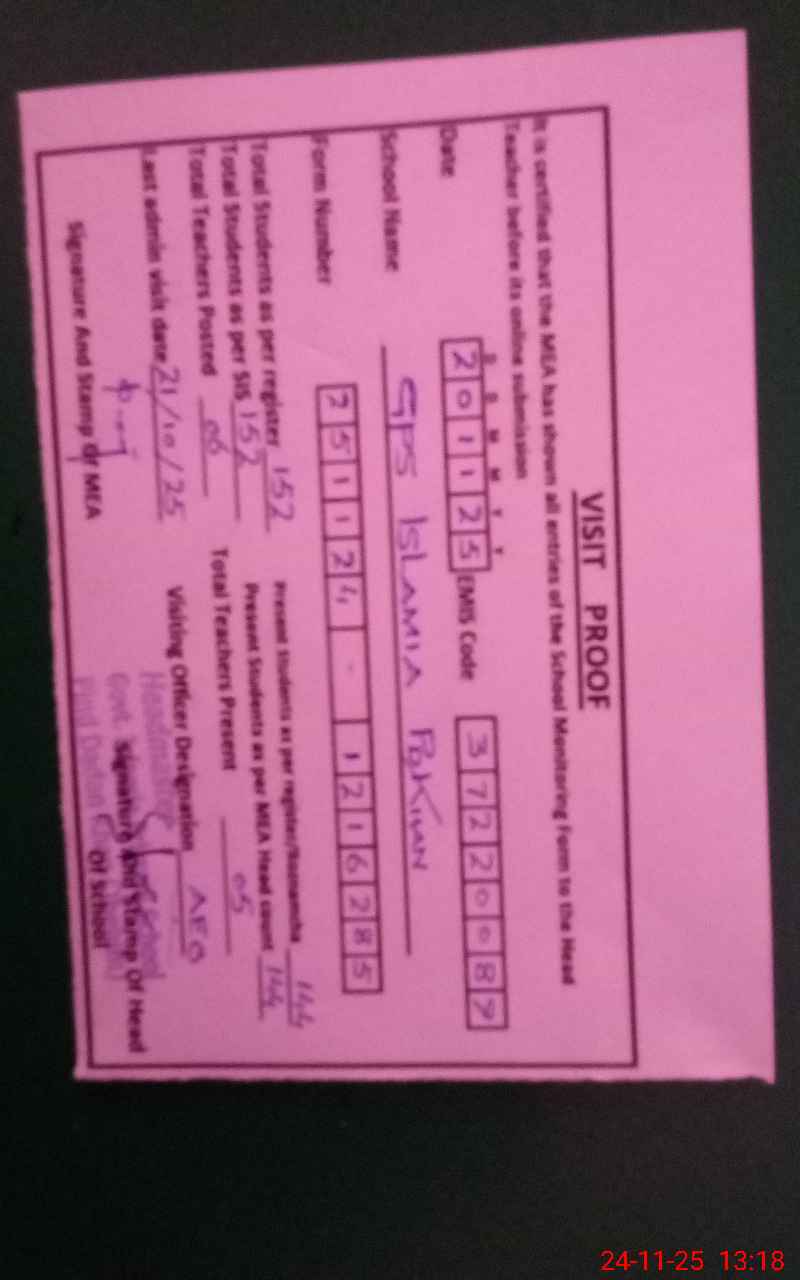 VISIT PROOF
It is certified that the MEA has shown all entries of the School Monitoring Form to the Head
Teacher before its online submission
D D M M Y Y
Date 2 0 1 1 2 5 EMIS Code 3 7 2 2 0 0 8 9
School Name GPS ISLAMIA
Form Number 2 5 1 1 2 4 - 1 2 1 6 2 8 5
Total Students as per register 152 Present students as per register/Roznamha 144
Total Students as per SIS 152 Present Students as per MEA Head count 144
Total Teachers Posted 06 Total Teachers Present 05
Last admin visit date 21/10/25 Visiting Officer Designation AEO
Signature And Stamp Of MEA Signature And Stamp Of Head
Of School
Headmaster
Govt.
Pind Dadan
24-11-25 13:18